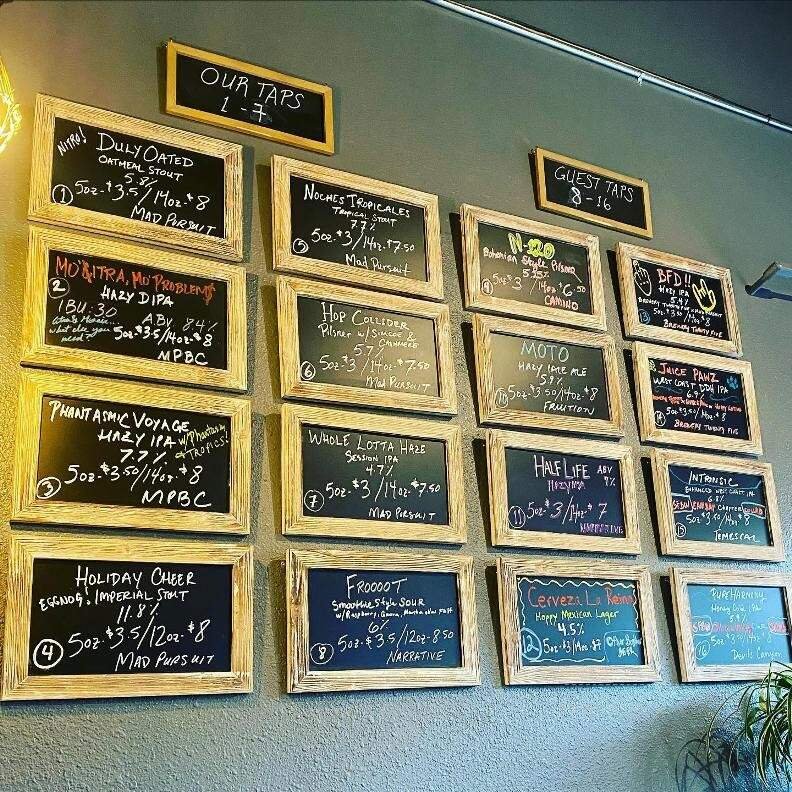 OUR TAPS
1 - 7
GUEST TAPS
8 - 16
NITRO!
DULY OATED
OATMEAL STOUT
5.8%
① 5oz-$3.5/14oz-$8
MAD PURSUIT
MO'$ITRA, MO' PROBLEM$
② HAZY DIPA
IBU: 30
ABV 8.4%
what else you need?
5oz-$3.5/14oz-$8
MPBC
PHANTASMIC VOYAGE
HAZY IPA w/Phantasm,
TROPICS!
7.7%
5oz-$3.50/14oz-$8
③ MPBC
HOLIDAY CHEER
EGGNOG! IMPERIAL STOUT
11.8%
5oz-$3.5/12oz-$8
④ MAD PURSUIT
NOCHES TROPICALES
TROPICAL STOUT
7.7%
⑤ 5oz-$3/14oz-$7.50
Mad Pursuit
HOP COLLIDER
PILSNER w/SIMCOE &
CASHMERE
5.7%
⑥ 5oz-$3/14oz-$7.50
MAD PURSUIT
WHOLE LOTTA HAZE
SESSION IPA
4.7%
⑦ 5oz-$3/14oz-$7.50
MAD PURSUIT
FROOOOT
Smoothie Style SOUR
w/Raspberry, Guava,
6%
⑧ 5oz-$3.5/12oz-8.50
NARRATIVE
N-120
Bohemian Style Pilsner
5.25%
5oz $3 /14oz $6.50
CAMINO
MOTO
HAZY PALE ALE
5.9%
⑩ 5oz-$3.50/14oz-$8
FRUITION
HALF LIFE ABV
HAZY IPA 7%
⑪ 5oz-$3/14oz-$7
Cerveza La Reina
Hoppy Mexican Lager
4.5%
⑫ 5oz-$3/14oz-$7
BFD!!
HAZY IPA
5.4%
BREWERY TWENTY FIVE
JUICE PAWZ
WEST COAST DDH IPA
6.9%
5oz-$3.50/14oz-$8
BREWERY TWENTY FIVE
INTRINSIC
ENHANCED WEST COAST IPA
6.8%
⑮ 5oz-$3.50/14oz-$8
TEMESCAL
PURE HARMONY
5.9%
⑯
Devils Canyon